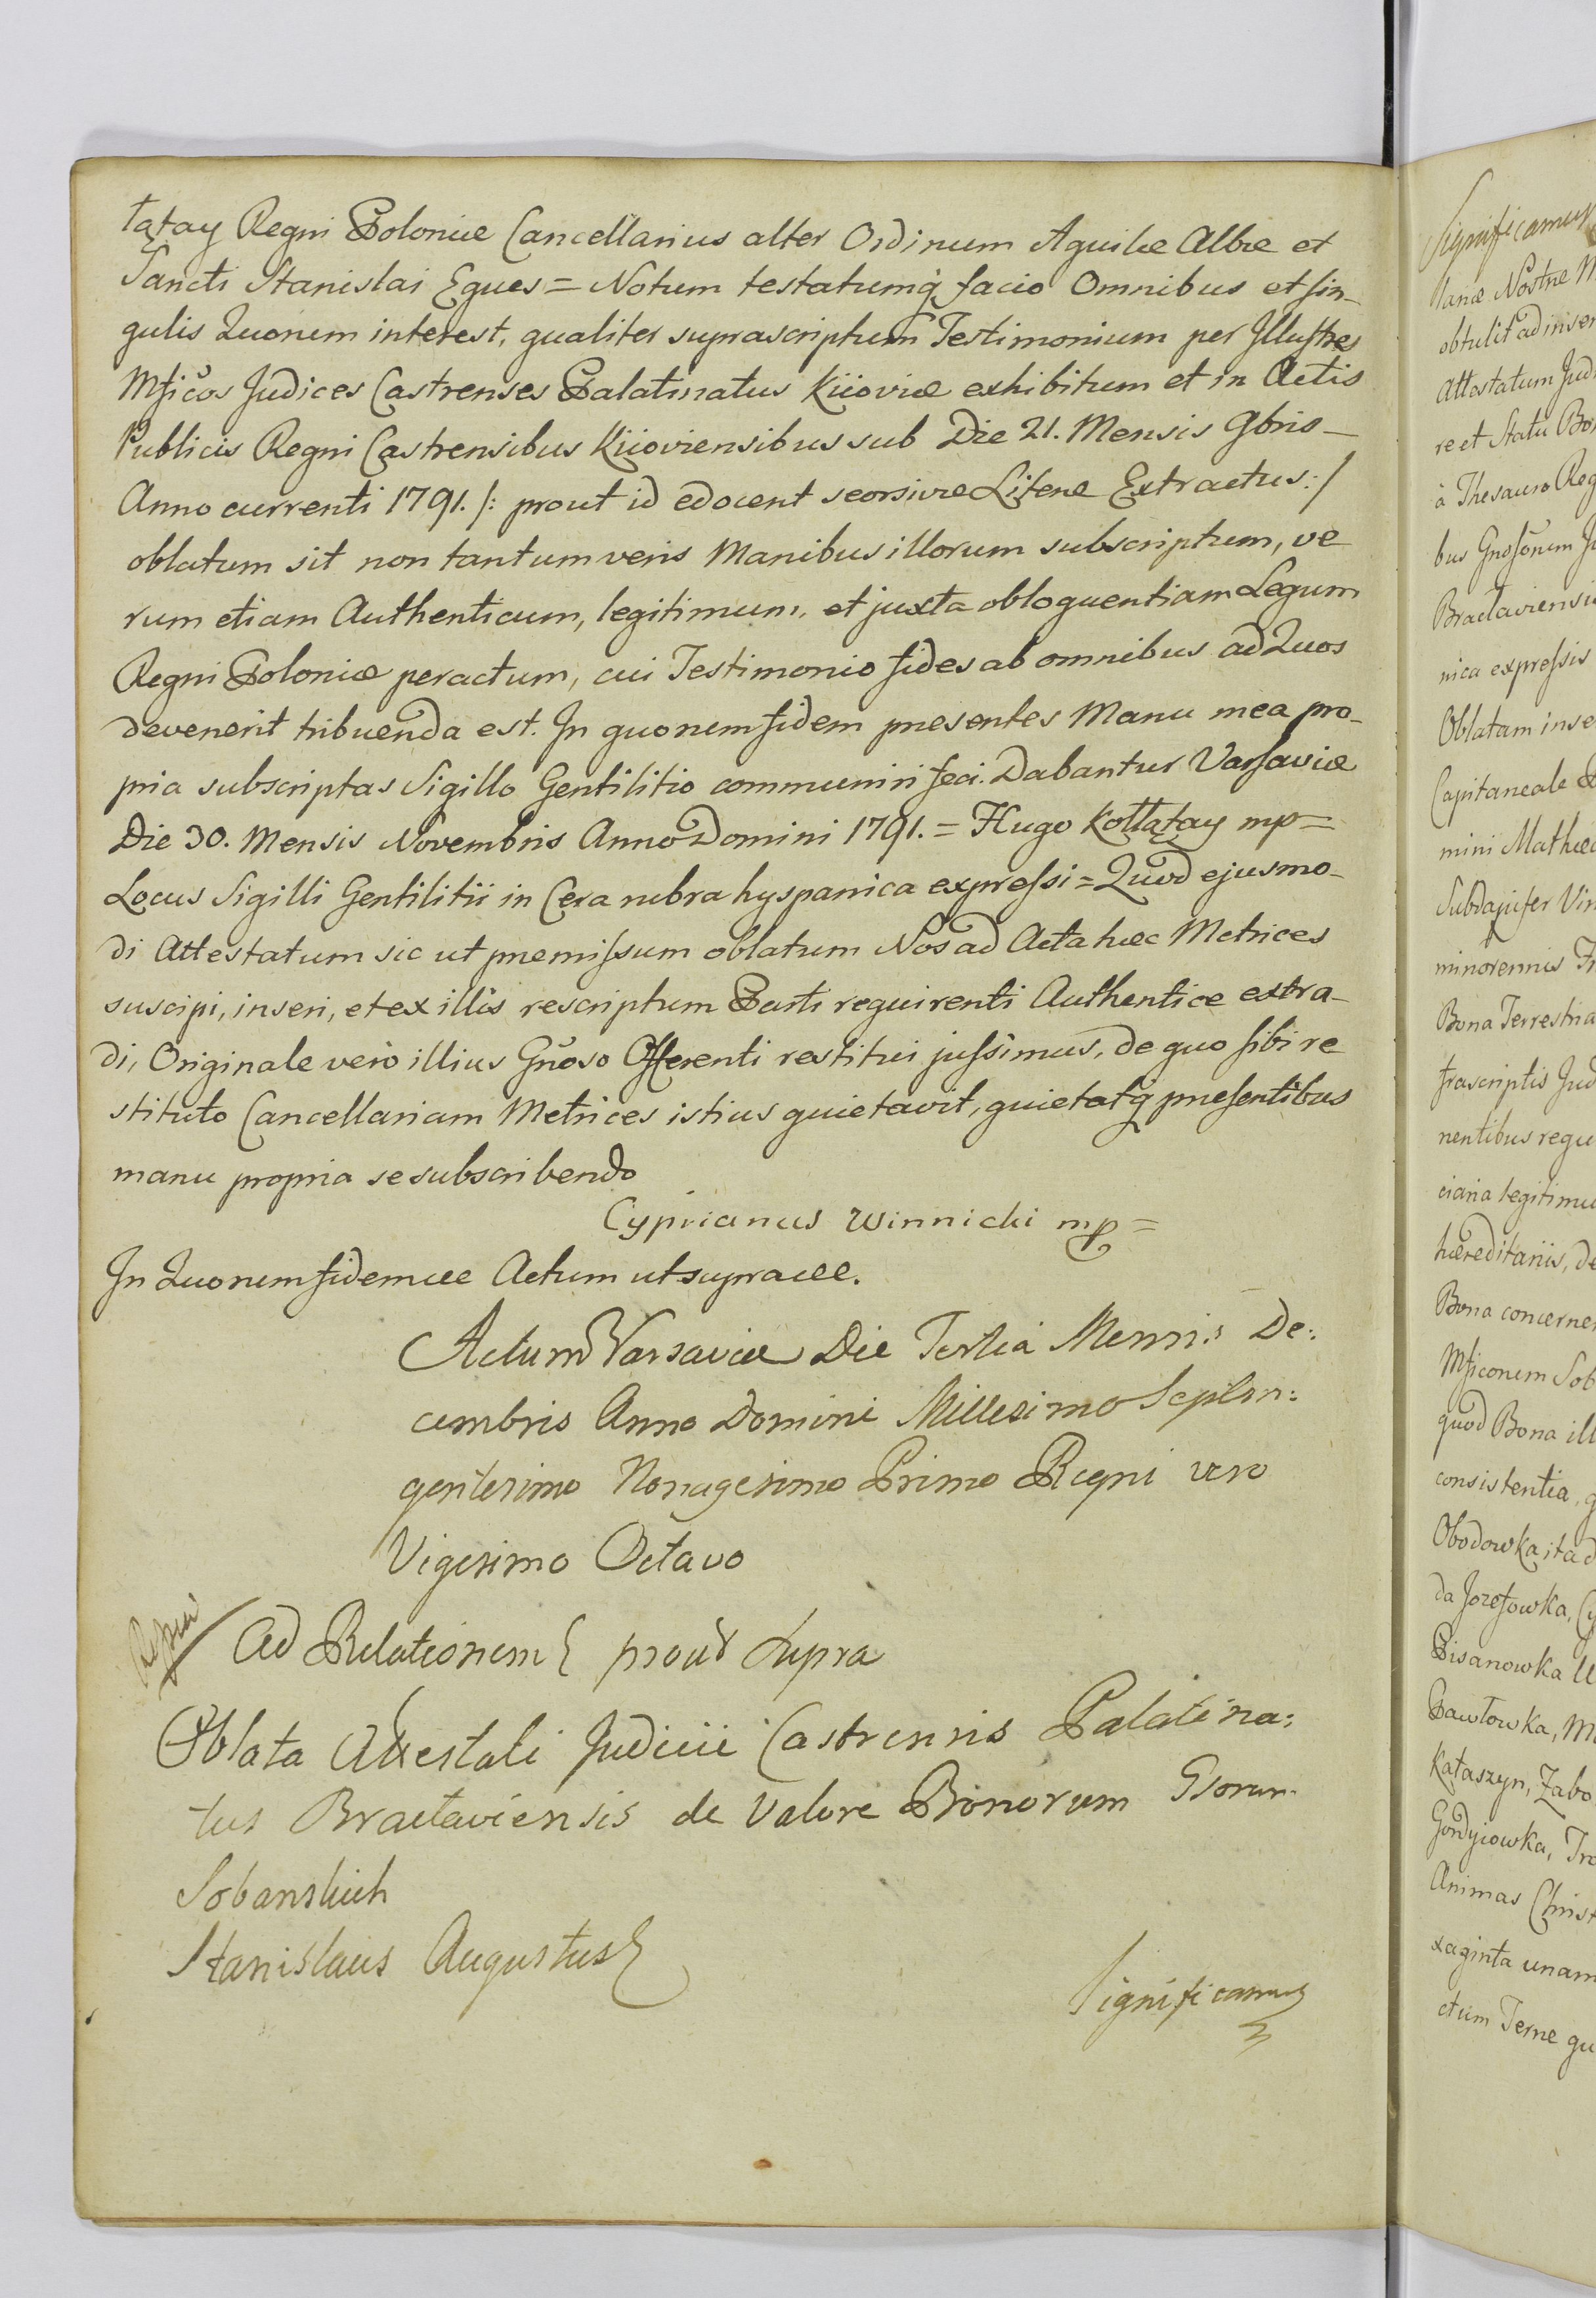 łątay Regni Poloniæ Cancellarius alter Ordinum Aquilæ Albæ et
Sancti Stanislai Eques = Notum testatumq̀ facio Omnibus et sin-
gulis Quorum interest, qualiter suprascriptum Testimonium per Illustres
Mficos Judices Castrenses Palatinatus Kiioviæ exhibitum et in Actis
Publicis Regni Castrensibus Kiioviensibus sub Die 21. Mensis 9bris -
Anno currenti 1791. /: prout id edocent seorsivæ Literæ Extractus :/
oblatum sit non tantum veris Manibus illorum subscriptum, ve
rum etiam Authenticum, legitimum, et juxta obloquentiam Legum
Regni Poloniæ peractum, cui Testimonio fides ab omnibus ad Quos
devenerit tribuenda est. In quorum fidem præsentes Manu mea pro-
pria subscriptas Sigillo Gentilitio communiri feci. Dabantur Varsaviæ
Die 30. Mensis Novembris Anno Domini 1791. = Hugo Kołłątay mp =
Locus Sigilli Gentilitii in Cera rubra hyspanica expressi = Quod ejusmo-
di Attestatum sic ut præmissum oblatum Nos ad Acta hæc Metrices
suscipi, inseri, et ex illis rescriptum Parti requirenti Authentice extra-
di, Originale verò illius Gnoso Offerenti restitui jussimus, de quo sibi re
stituto Cancellariam Metrices istius quietavit, quietatq̀ præsentibus
manu propria se subscribendo
Cyprianus Winnicki mp =
In Quorum fidem &c Actum ut supra &c.
Actum Varsaviæ Die Tertia Mensis De:
cembris Anno Domini Millesimo Septin:
gentesimo Nonagesimo Primo Regni vero
Vigesimo Octavo
Ad Relationem prout supra
Oblata Attestati Judicii Castrensis Palatina:
tus Braclaviensis de Valore Bonorum Gsorum
Sobanskich
Stanislaus Augustus
Significamus
Significamus
lariæ Nostræ M
obtulit ad inser
Attestatum Judi
re et Statu Bon
à Thesauro Reg
bus Gnosorum J
Braclaviensi
nica expressis
Oblatam inse
Capitaneale
mini Mathæ
Subdapifer Vin
minorennis Fr
Bona Terrestria
frascriptis Jud
nentibus requ
ciaria legitimu
hæreditariis, de
Bona concerne
Mficorum Sob
quod Bona ill
consistentia, q
Obodowka ita d
da Jozefowka, Cy
Pisarowka U
Pawłowka, M
Kataszyn, Zabo
Gordyiowka, Tro
Animas Christ
xaginta unam
ctum Terræ qu